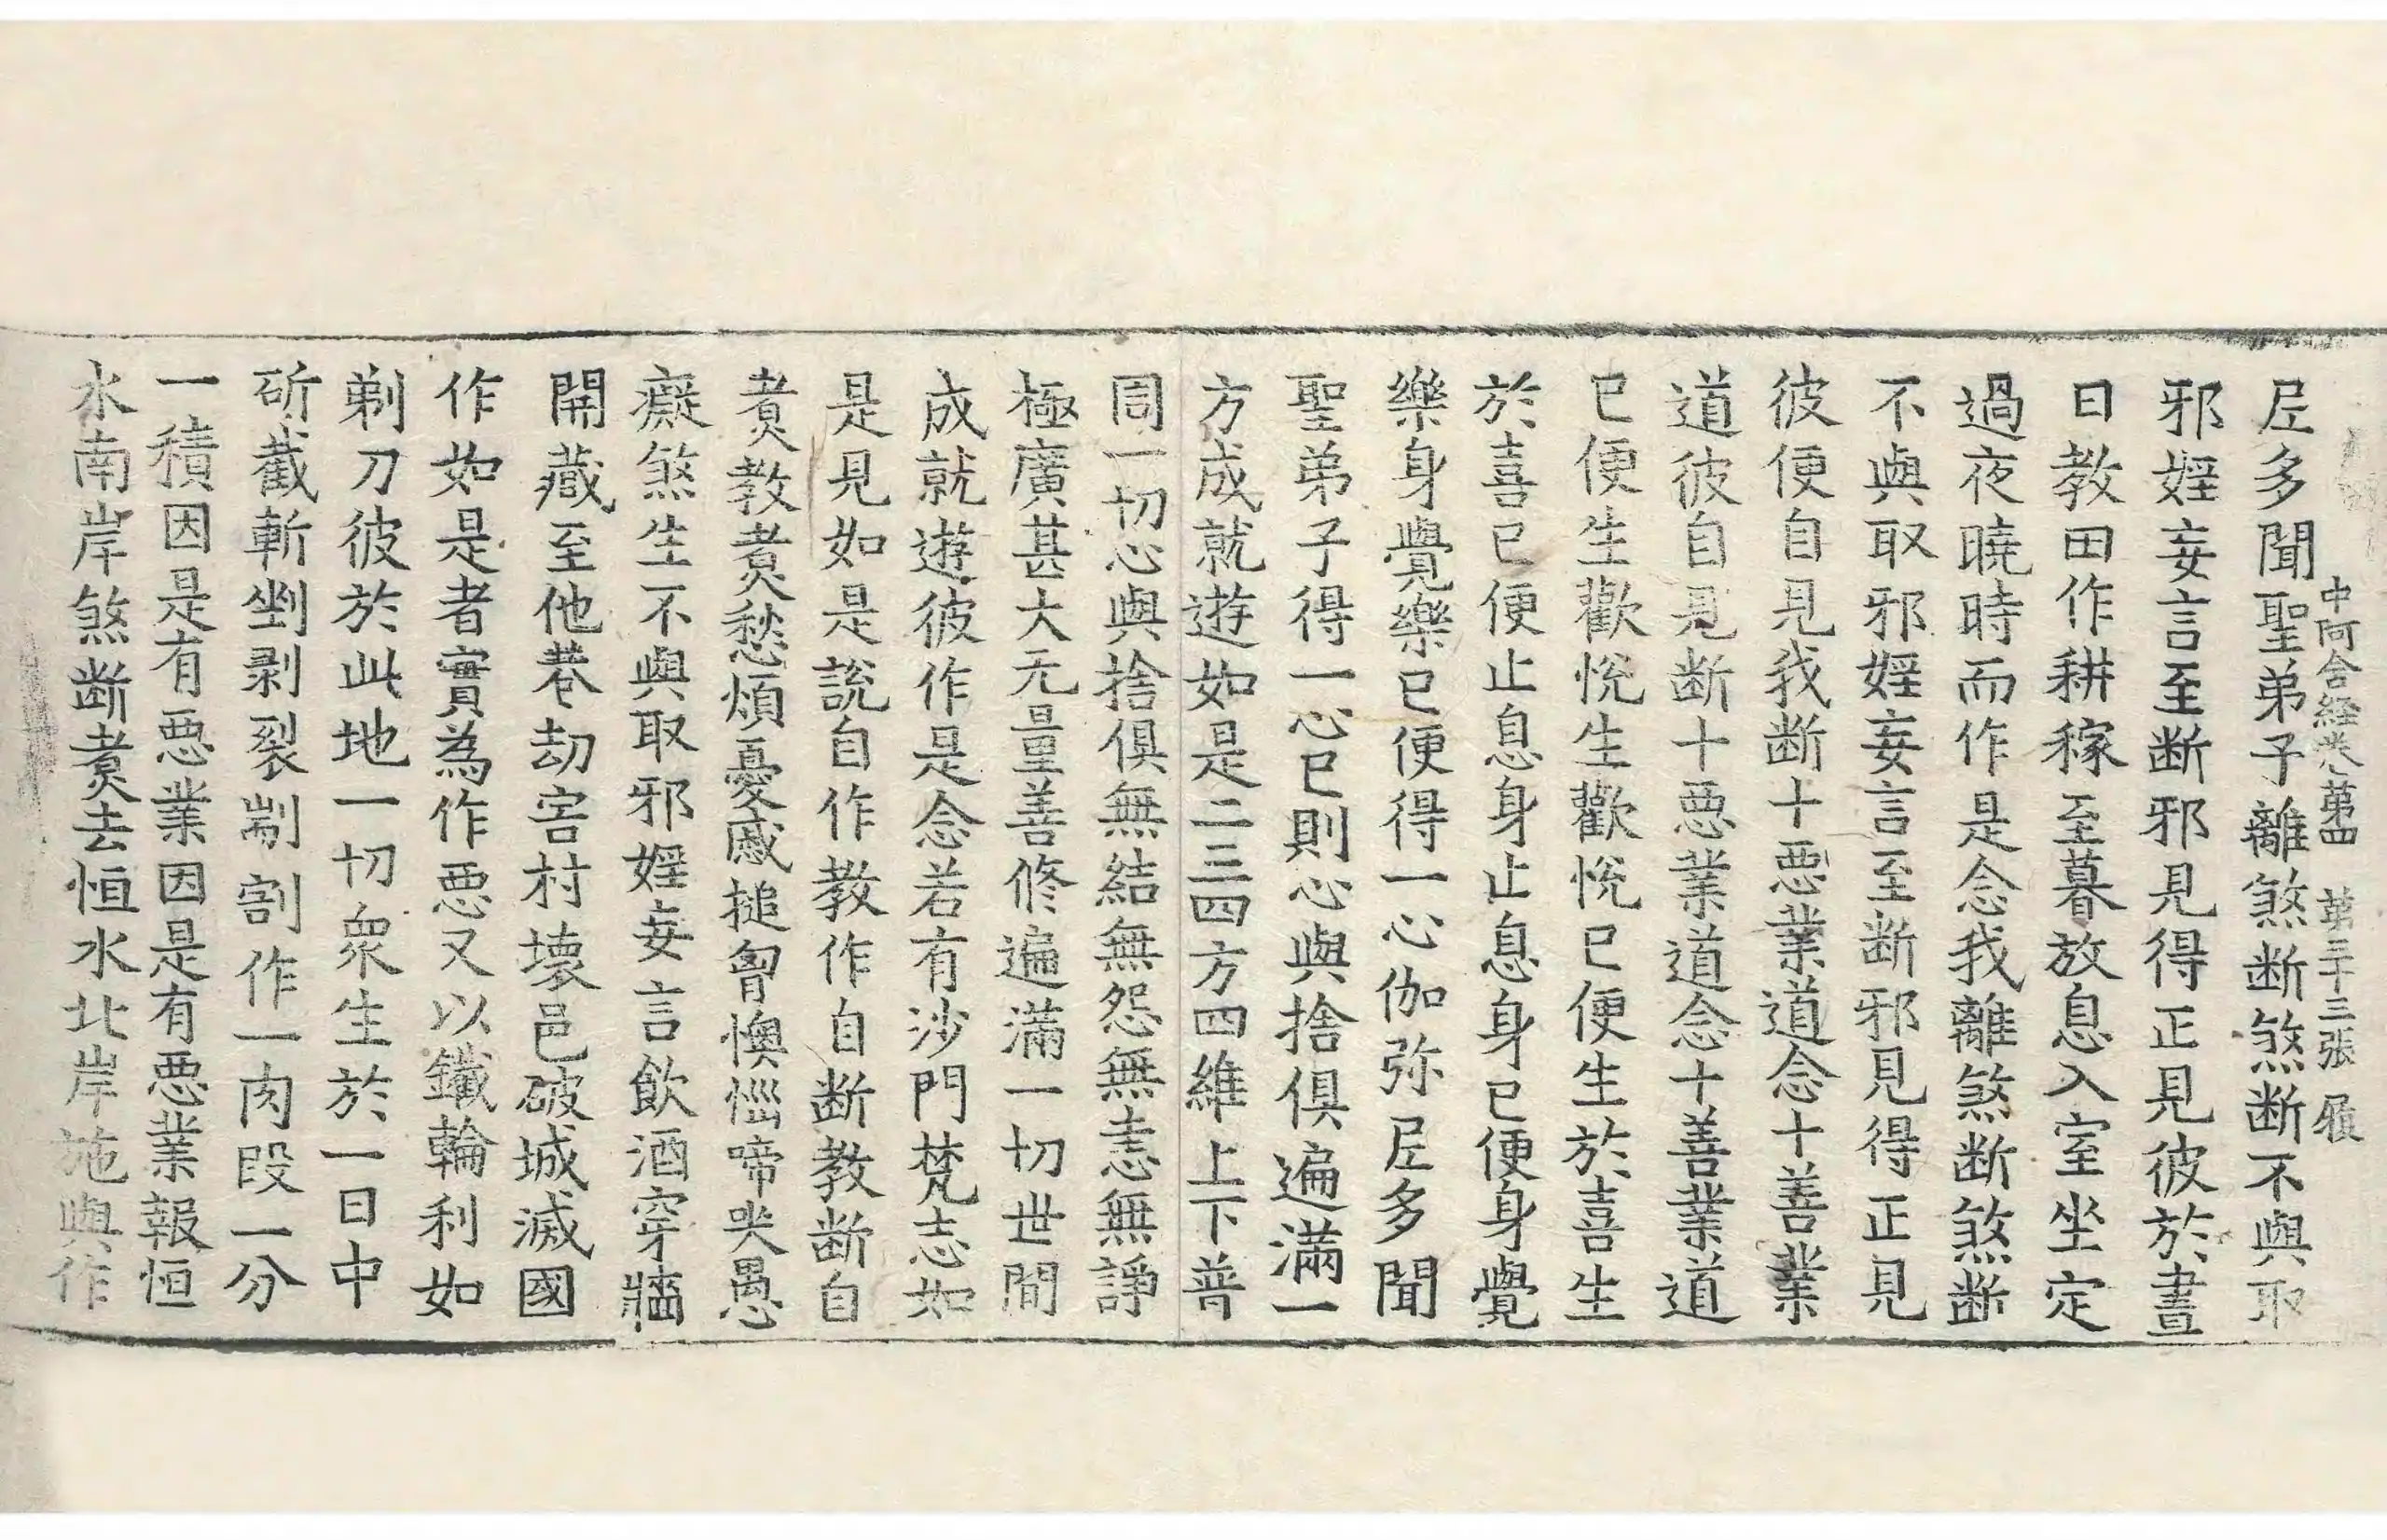 中阿含経巻第四 第二十三張 履
尼多聞聖弟子離煞断煞断不與取
邪婬妄言至断邪見得正見彼於晝
日教田作耕稼至暮放息入室坐定
過夜曉時而作是念我離煞断煞断
不與取邪婬妄言至断邪見得正見
彼便自見我断十惡業道念十善業
道彼自見断十惡業道念十善業道
已便生歡悅生歡悅已便生於喜生
於喜已便止息身止息身已便身覺
樂身覺樂已便得一心伽弥尼多聞
聖弟子得一心已則心與捨俱遍滿一
方成就遊如是二三四方四維上下普
周一切心與捨俱無結無怨無恚無諍
極廣甚大无量善修遍滿一切世間
成就遊彼作是念若有沙門梵志如
是見如是說自作教作自断教断自
煑教煑愁煩憂慼搥匈懊惱啼哭愚
癡煞生不與取邪婬妄言飲酒穿牆
開藏至他巷劫害村壞邑破城滅國
作如是者實為作惡又以鐵輪利如
剃刀彼於此地一切衆生於一日中
斫截斬剉剥裂剬割作一肉段一分
一積因是有惡業因是有惡業報恒
水南岸煞断煑去恒水北岸施與作